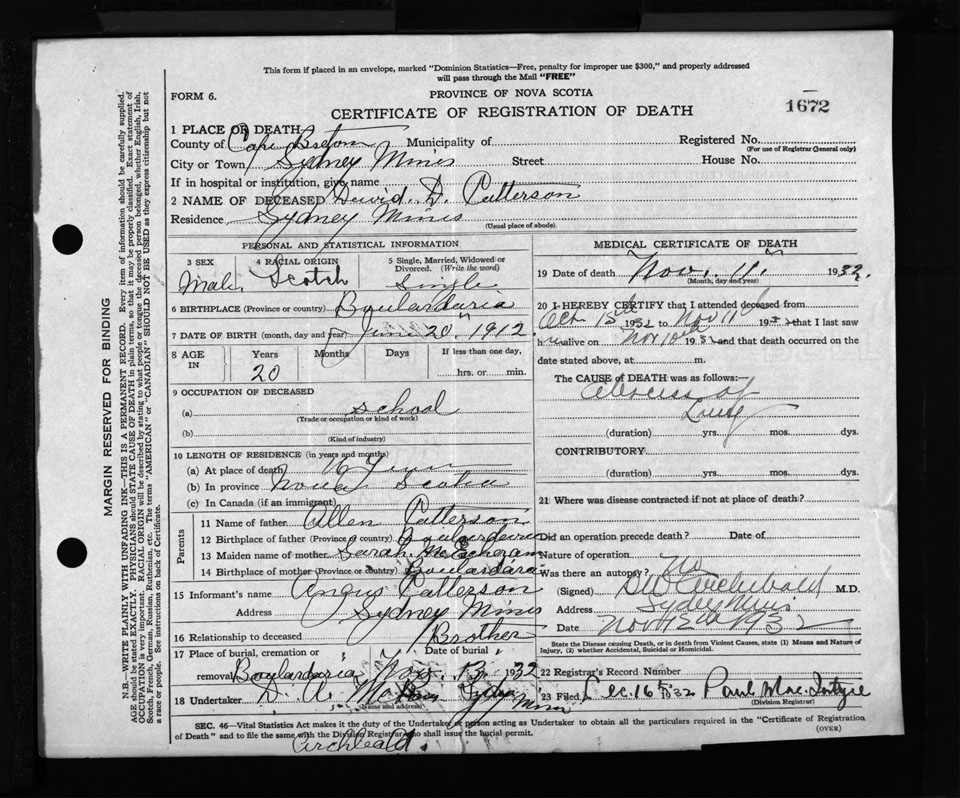 This form if placed in an envelope, marked "Dominion Statistics—Free, penalty for improper use $300," and properly addressed
will pass through the Mail "FREE"
FORM 6.
PROVINCE OF NOVA SCOTIA
CERTIFICATE OF REGISTRATION OF DEATH
1672
MARGIN RESERVED FOR BINDING
N.B.—WRITE PLAINLY WITH UNFADING INK—THIS IS A PERMANENT RECORD. Every item of information should be carefully supplied.
AGE should be stated EXACTLY. PHYSICIANS should STATE CAUSE OF DEATH in plain terms, so that it may be properly classified. Exact statement of
OCCUPATION is very important. RACIAL ORIGIN will be described by stating to what people or tongue the deceased person belonged, whether English, Irish,
Scotch, French, German, Russian, Ruthenian, etc. The terms "AMERICAN" or "CANADIAN" SHOULD NOT BE USED as they express citizenship but not
a race or people. See instructions on back of Certificate.
1 PLACE OF DEATH
County of Cape Breton Municipality of Registered No.
(For use of Registrar General only)
City or Town Sydney Mines Street House No.
If in hospital or institution, give name
2 NAME OF DECEASED David. D. Patterson
Residence Sydney Mines
(Usual place of abode)
PERSONAL AND STATISTICAL INFORMATION
3 SEX
Male.
4 RACIAL ORIGIN
Scotch
5 Single, Married, Widowed or
Divorced. (Write the word)
Single
6 BIRTHPLACE (Province or country) Boulardaria
7 DATE OF BIRTH (month, day and year) 20" 1912
8 AGE
IN
Years
20
Months
Days
If less than one day,
hrs. or min.
9 OCCUPATION OF DECEASED
(a) School
(Trade or occupation or kind of work)
(b)
(Kind of industry)
10 LENGTH OF RESIDENCE (in years and months)
(a) At place of death
(b) In province Nova Scotia
(c) In Canada (if an immigrant)
Parents
11 Name of father Allen Patterson
12 Birthplace of father (Province or country) Boulardaria
13 Maiden name of mother Sarah McEachran
14 Birthplace of mother (Province or country) Boulardaria
15 Informant's name Angus Patterson
Address Sydney Mines
16 Relationship to deceased Brother
17 Place of burial, cremation or
removal Boulardaria
Date of burial
Nov. 13, 1932
18 Undertaker D. A. Sydney Mines
(Name and address)
MEDICAL CERTIFICATE OF DEATH
19 Date of death Nov. 11" 1932.
(Month, day and year)
20 I HEREBY CERTIFY that I attended deceased from
Oct 15th 1932 to Nov 11th 193 that I last saw
h alive on Nov 10th 193 and that death occurred on the
date stated above, at m.
The CAUSE OF DEATH was as follows:—
Abscess of
Lung
(duration) yrs. mos. dys.
CONTRIBUTORY
(duration) yrs. mos. dys.
21 Where was disease contracted if not at place of death?
Did an operation precede death? Date of
Nature of operation
Was there an autopsy? No
(Signed) Archibald M.D.
Address Sydney Mines
Date Nov 1932
State the Disease Causing Death, or in death from Violent Causes, state (1) Means and Nature of
Injury, (2) whether Accidental, Suicidal or Homicidal.
22 Registrar's Record Number
23 Filed Dec. 16th 1932 Paul Mac. Intyre
(Division Registrar)
SEC. 46—Vital Statistics Act makes it the duty of the Undertaker or person acting as Undertaker to obtain all the particulars required in the "Certificate of Registration
of Death" and to file the same with the Division Registrar who shall issue the burial permit.
(OVER)
Archbeald.